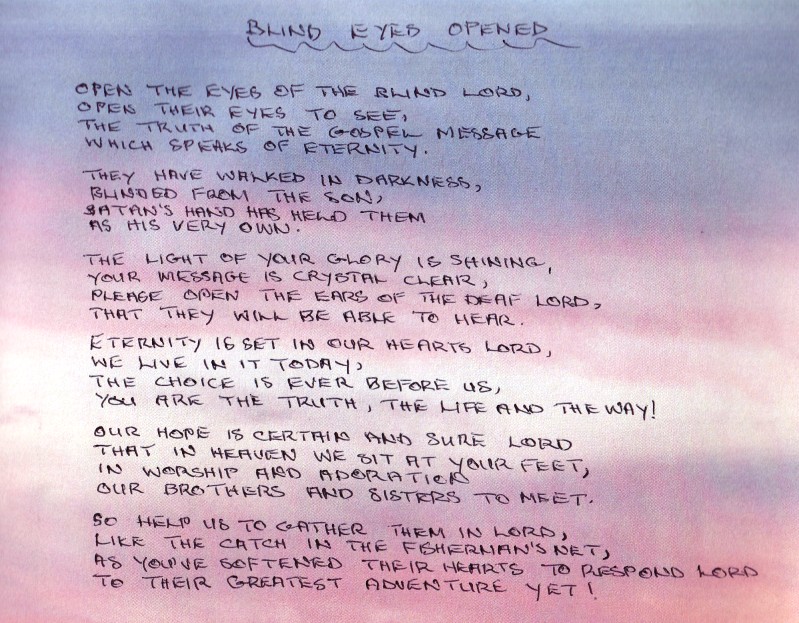 BLIND EYES OPENED
OPEN THE EYES OF THE BLIND LORD,
OPEN THEIR EYES TO SEE,
THE TRUTH OF THE GOSPEL MESSAGE
WHICH SPEAKS OF ETERNITY.
THEY HAVE WALKED IN DARKNESS,
BLINDED FROM THE SON,
SATAN'S HAND HAS HELD THEM
AS HIS VERY OWN.
THE LIGHT OF YOUR GLORY IS SHINING,
YOUR MESSAGE IS CRYSTAL CLEAR,
PLEASE OPEN THE EARS OF THE DEAF LORD,
THAT THEY WILL BE ABLE TO HEAR.
ETERNITY IS SET IN OUR HEARTS LORD,
WE LIVE IN IT TODAY,
THE CHOICE IS EVER BEFORE US,
YOU ARE THE TRUTH, THE LIFE AND THE WAY!
OUR HOPE IS CERTAIN AND SURE LORD
THAT IN HEAVEN WE SIT AT YOUR FEET,
IN WORSHIP AND ADORATION
OUR BROTHERS AND SISTERS TO MEET.
SO HELP US TO GATHER THEM IN LORD,
LIKE THE CATCH IN THE FISHERMAN'S NET,
AS YOU'VE SOFTENED THEIR HEARTS TO RESPOND LORD
TO THEIR GREATEST ADVENTURE YET!